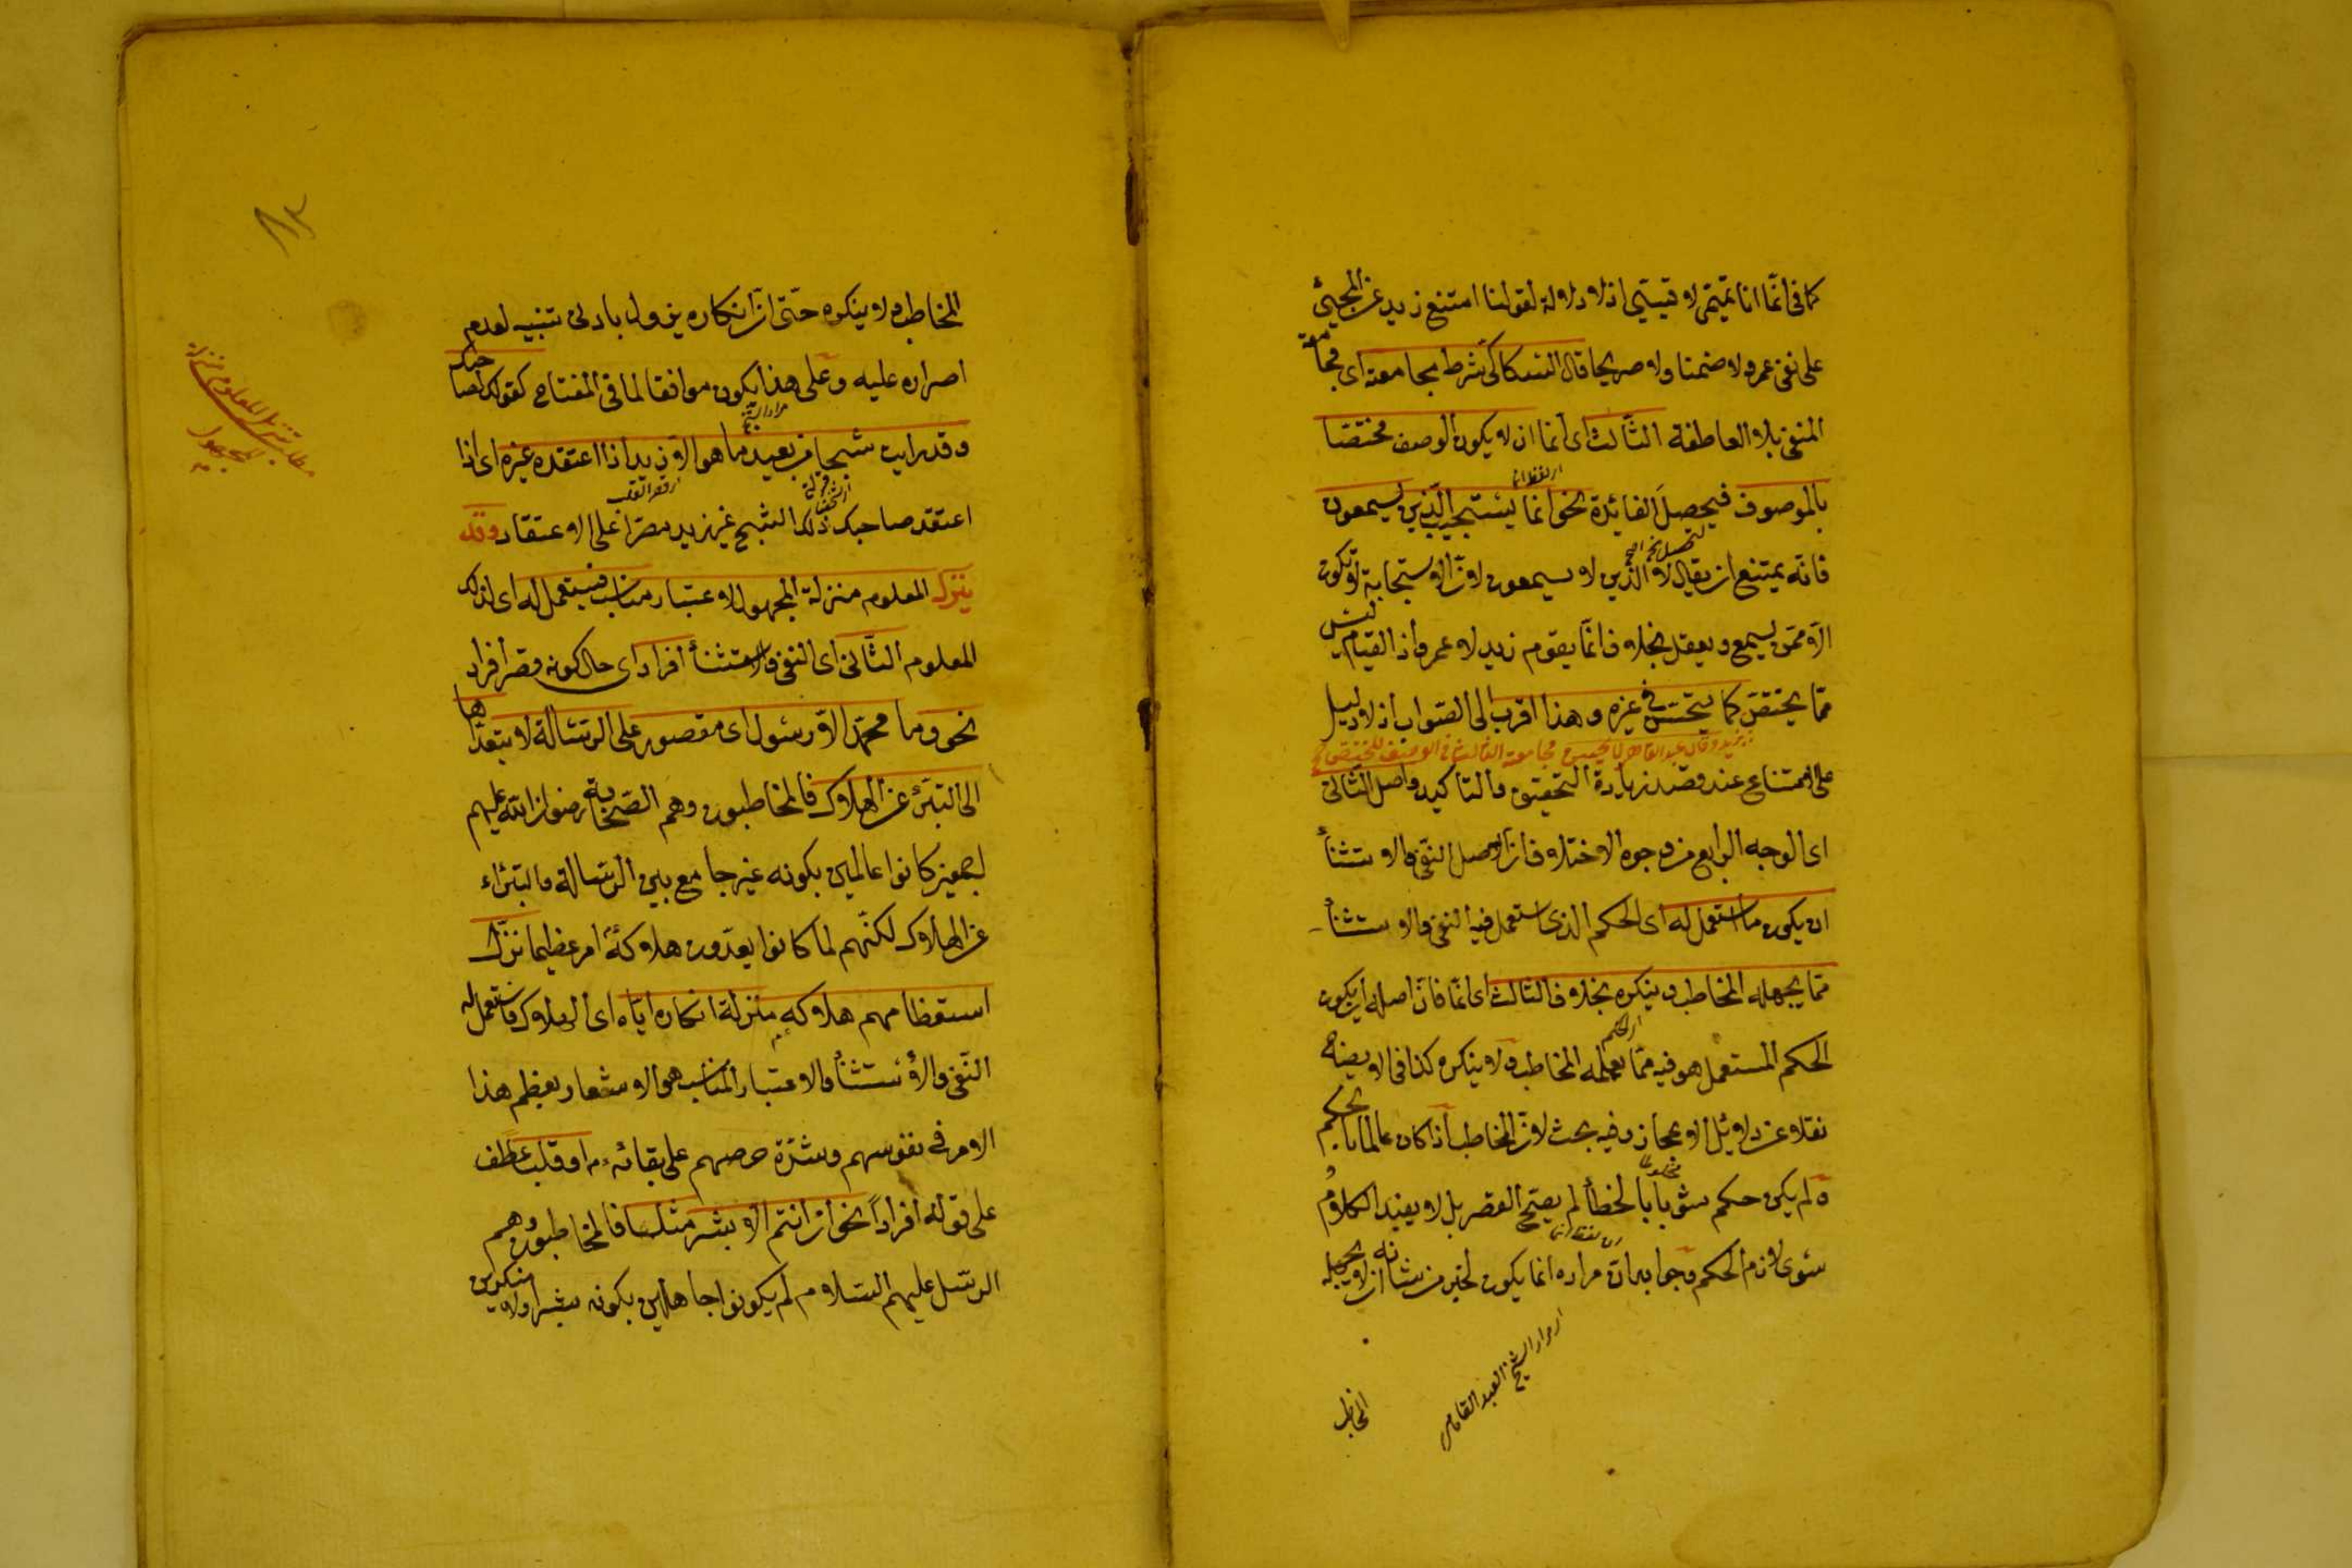 كما فى انّما انا تميمّى لا قيسىّ اذ لا دلالة لقولنا امتنع زيد عن المجيئ
على نفى عمرو لا ضمنا ولا صريحا قال السكاكىّ شرط مجامعته اى مجامعة
المنفى بلا العاطفة الثّالث اى انّما ان لا يكون الوصف مختصّا
اى لفظ انما
بالموصوف فيحصل الفائدة نحو انما يستجيب الّذين يسمعون
فانّه يمتنع ان يقال لا الّذين لا يسمعون لانّ الاستجابة لا تكون
الّا ممّن يسمع ويعقل بخلاف انّما يقوم زيد لا عمرو اذ القيام ليس
ممّا يختصّ كما يحسن فى غيره وهذا اقرب الى الصّواب اذ لا دليل
بزيد وقال عبد القاهر لا يحسن مجامعته الثالث فى الوصف المختصّ
على الامتناع عند قصد زيادة التّحقيق والتاكيد واصل الثّانى
اى الوجه الرابع من وجوه الاختلاف ان اصل النّفى والاستثنأ
ان يكون ما استعمل له اى الحكم الذى استعمل فيه النفى والاستثنأ
ممّا يجهله المخاطب وينكره بخلاف الثالث اى انّما فانّ اصله ان يكون
الحكم المستعمل هو فيه ممّا يعلمه المخاطب ولا ينكره كذا فى الايضاح
نقلا عن دلائل الاعجاز وفيه بحث لانّ المخاطب اذا كان عالما بالحكم
ولم يكن حكمه مشوبا بالخطأ لم يصحّ القصر بل لا يفيد الكلام
سوى لازم الحكم وجوابه انّ مراده انّما يكون لخبر من شانه ان لا يجهله
اى مراد الشيخ العبد القاهر
المخاطب
المخاطب ولا ينكره حتّى انّ انكاره يزول بادنى تنبيه لعدم
اصراره عليه وعلى هذا يكون موافقا لما فى المفتاح كقولك لصاحبك
وقد رايت شبحا من بعيد ما هو الّا زيد اذا اعتقده غيره اى اذا
اعتقد صاحبك ذلك الشبح غير زيد مصرّا على الاعتقاد وقد
ينزل المعلوم منزلة المجهول لاعتبار مناسب فيستعمل له اى لذلك
المعلوم الثّانى اى النفى والاستثنأ افرادا اى حال كونه قصر افراد
نحو وما محمّد الّا رسول اى مقصور على الرّسالة لا يتعدّاها
الى التبرّئ عن الهلاك فالمخاطبون وهم الصّحابة رضوان اللّه عليهم
اجمعين كانوا عالمين بكونه غير جامع بين الرّسالة والتبرّاء
عن الهلاك لكنّهم لما كانوا يعدّون هلاكه امر عظيما نزّل
استعظامهم هلاكه منزلة انكاره ايّاه اى الهلاك فاستعمل له
النّفى والاستثنأ والاعتبار المناسب هو الاشعار بعظم هذا
الامر فى نفوسهم وشدّة حرصهم على بقائه او قلبا عطف
على قوله افرادا نحو ان انتم الّا بشر مثلنا فالمخاطبون وهم
الرّسل عليهم السّلام لم يكونوا جاهلين بكونه بشرا ولا منكرين
مطلب تنزيل المعلوم منزلة
المجهول